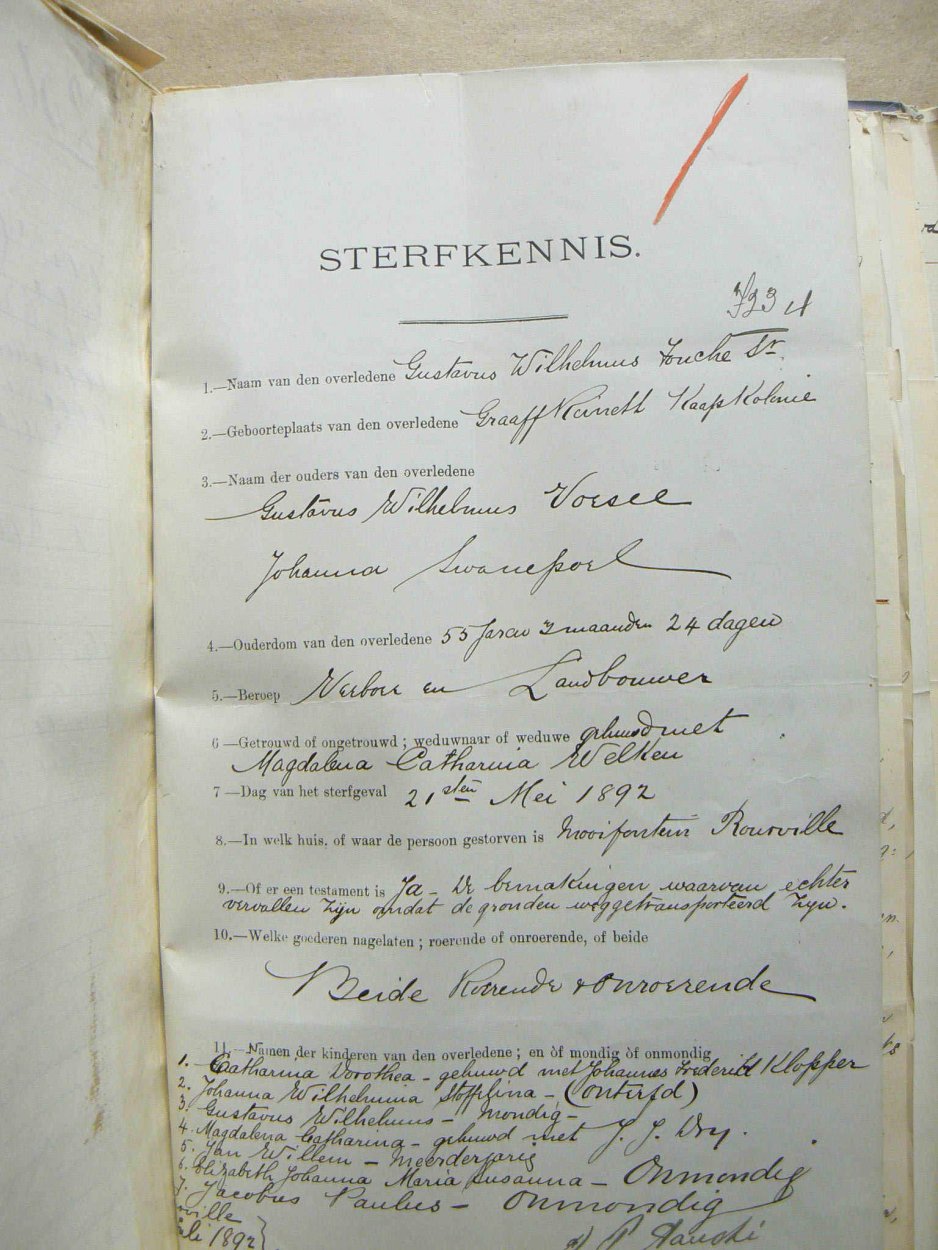 STERFKENNIS.
1.—Naam van den overledene Gustavus Wilhelmus Fouche Sr.
2.—Geboorteplaats van den overledene Graaff Reinett Kaap Kolonie
3.—Naam der ouders van den overledene
Gustavus Wilhelmus
Johanna Swanepoel
4.—Ouderdom van den overledene 55 Jaren 3 maanden 24 dagen
5.—Beroep Veeboer en Landbouwer
6—Getrouwd of ongetrouwd; weduwnaar of weduwe gehuwd met
Magdalena Catharina
7—Dag van het sterfgeval 21sten Mei 1892
8.—In welk huis, of waar de persoon gestorven is Mooifontein Rouxville
9.—Of er een testament is Ja — De bemakingen waarvan echter
vervallen zijn omdat de gronden weggetransporteerd zijn.
10.—Welke goederen nagelaten; roerende of onroerende, of beide
Beide Roerende & Onroerende
11.—Namen der kinderen van den overledene; en òf mondig òf onmondig
1. Catharina Dorothea — gehuwd met Johannes Frederik Klopper
2. Johanna Wilhelmina (onterfd)
3. Gustavus Wilhelmus — Mondig —
4. Magdalena Catharina — gehuwd met J. J. Dry.
5. Jan Willem — Meerderjarig
6. Elizabeth Johanna Maria Susanna — Onmondig
7. Jacobus Paulus — Onmondig
ville
uli 1892